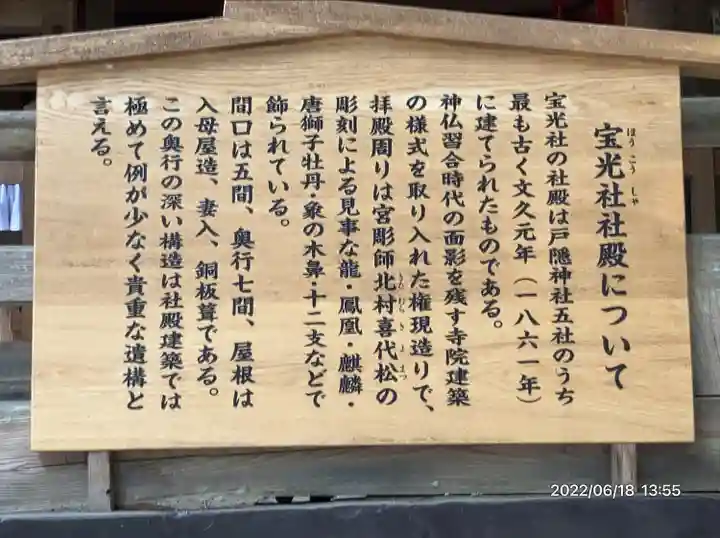 宝光社社殿について
ほうこうしゃ
宝光社の社殿は戸隠神社五社のうち
最も古く文久元年（一八六一年）
に建てられたものである。
神仏習合時代の面影を残す寺院建築
の様式を取り入れた権現造りで、
拝殿周りは宮彫師北村喜代松の
きたむらきよまつ
彫刻による見事な龍・鳳凰・麒麟・
唐獅子牡丹・象の木鼻・十二支などで
飾られている。
間口は五間、奥行七間、屋根は
入母屋造、妻入、銅板葺である。
この奥行の深い構造は社殿建築では
極めて例が少なく貴重な遺構と
言える。
2022/06/18 13:55